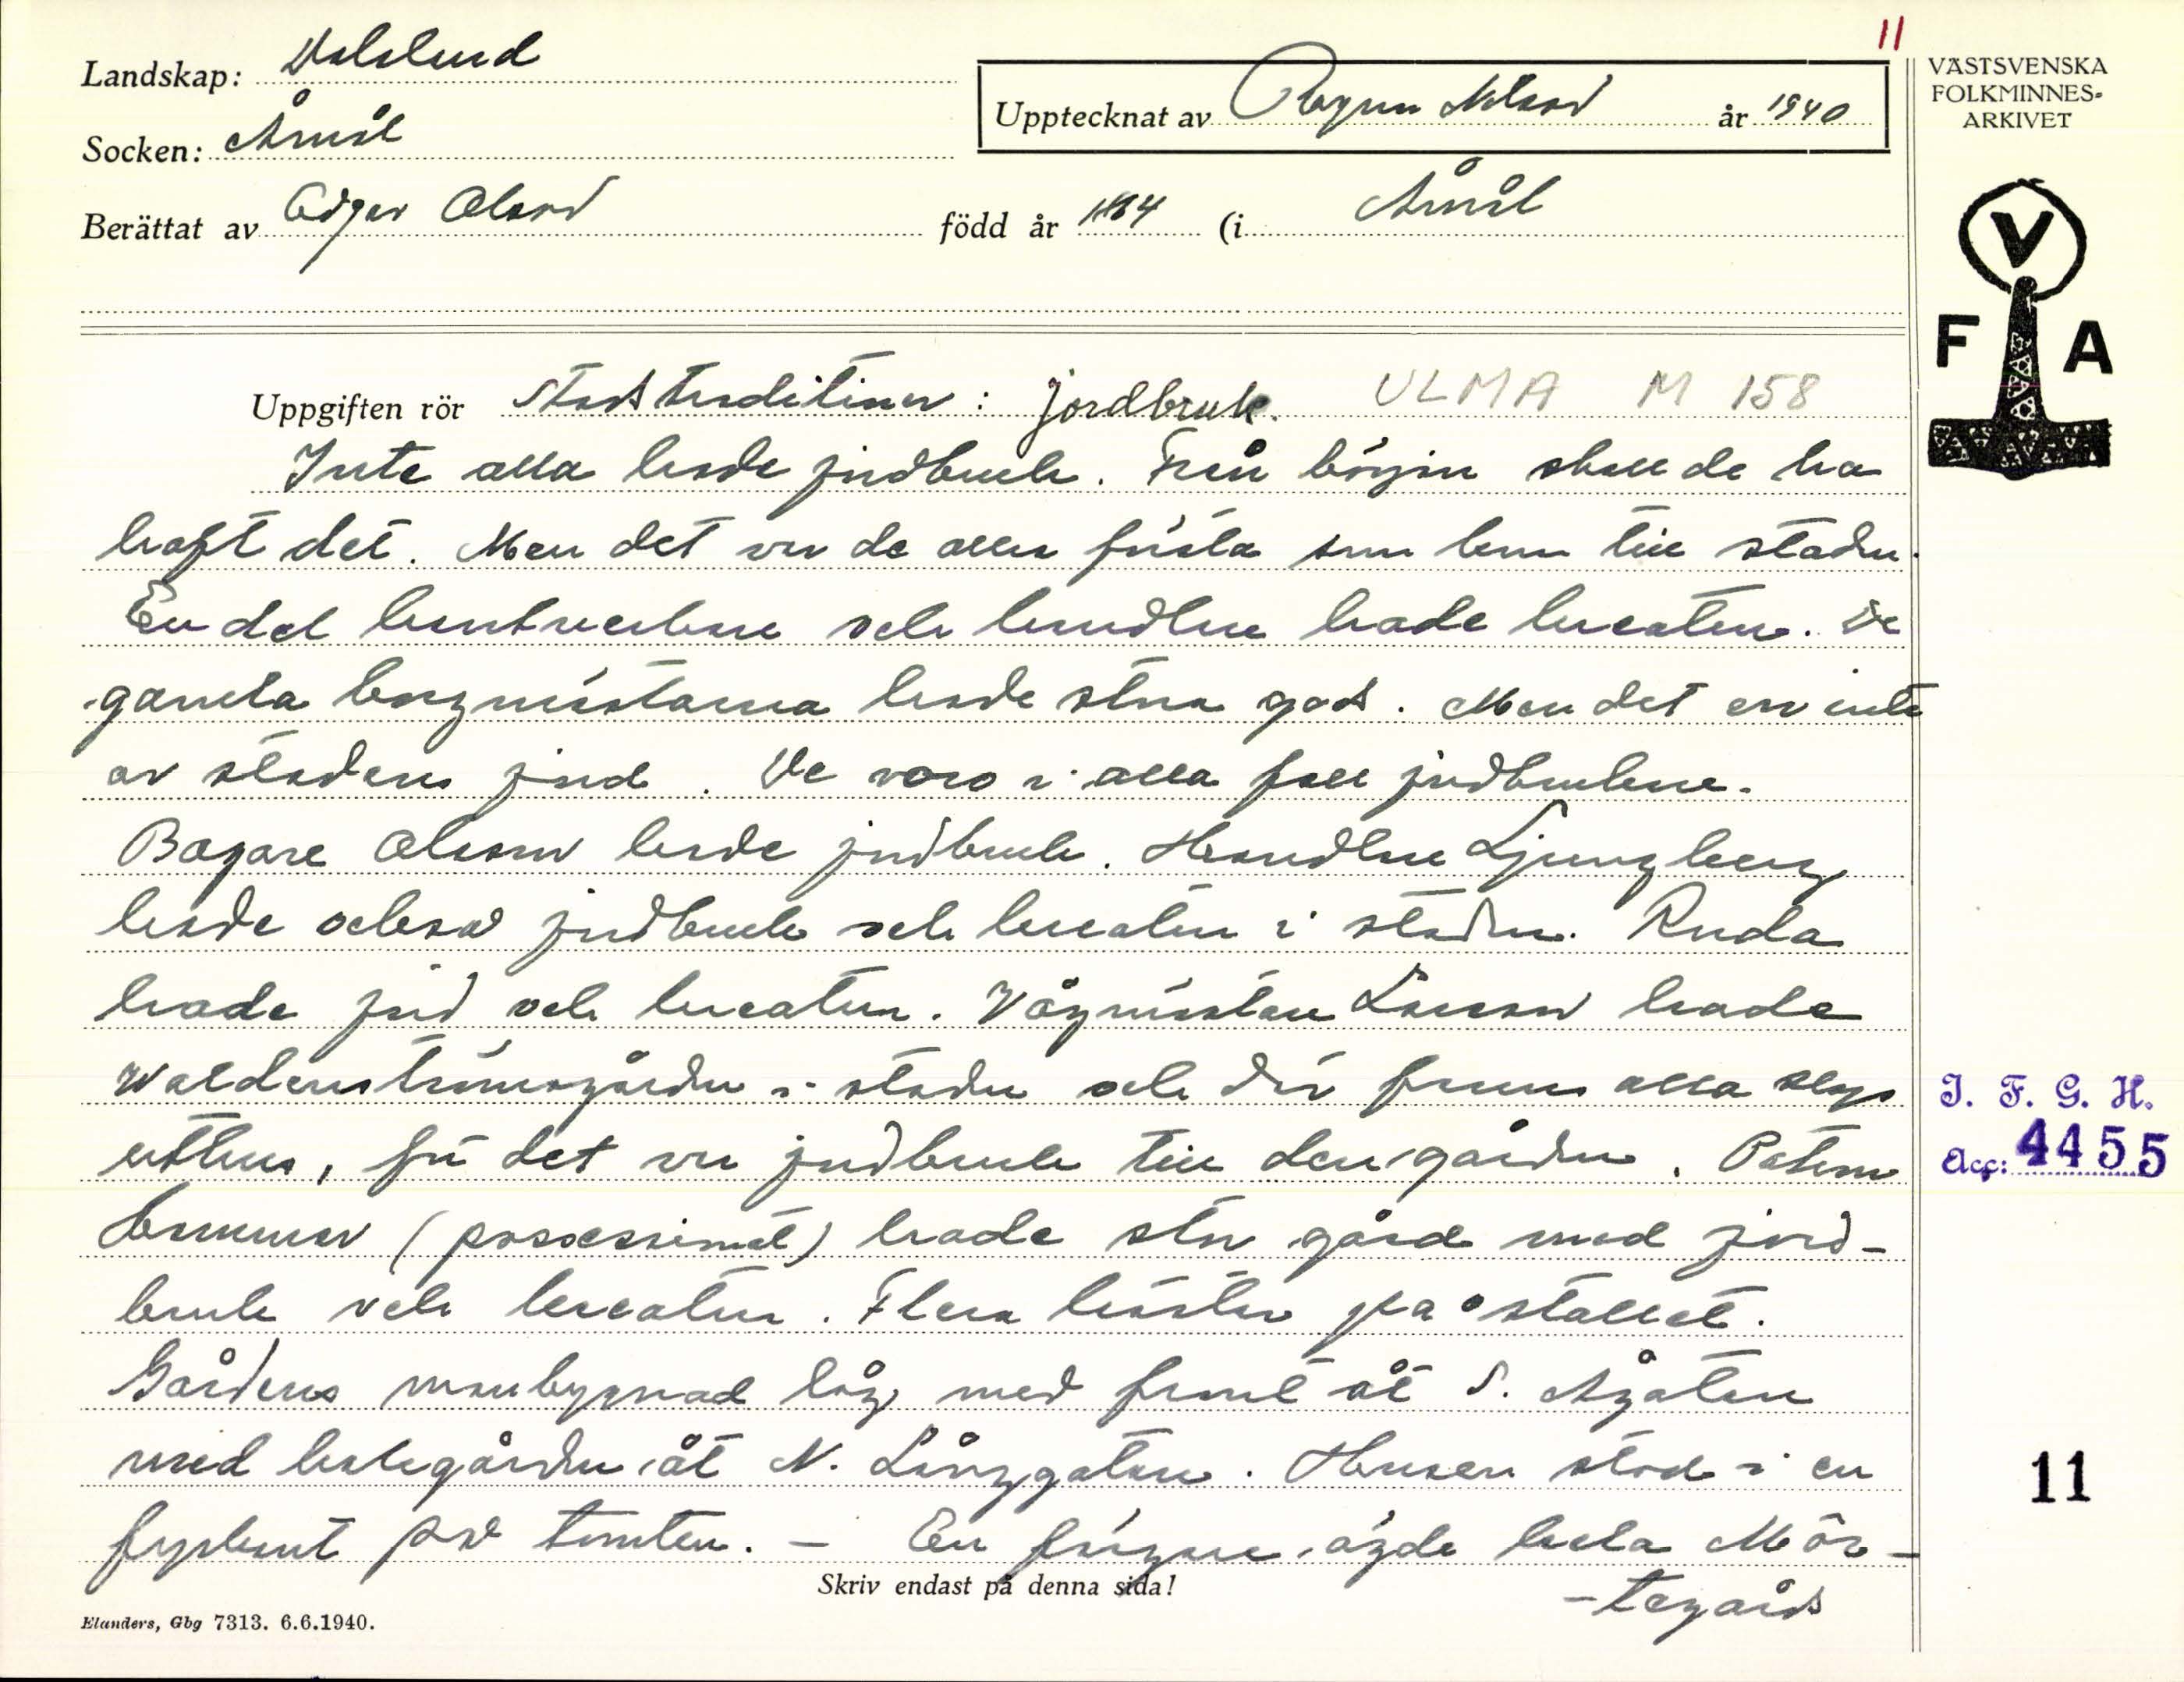 11
Landskap: Dalsland
Socken: Åmål
Upptecknat av Ragnar Nilsson år 1940
Berättat av Edgar Olsson född år 1864 (i Åmål
VÄSTSVENSKA
FOLKMINNES-
ARKIVET
V
F A
Uppgiften rör Stadstraditioner: jordbruk. ULMA M 158
Inte alla hade jordbruk. Från början skall de ha
haft det. Men det var de allra första som kom till staden.
En del hantverkare och handlare hade kreatur. De
gamla borgmästarna hade stora gods. Men det var inte
av stadens jord. De voro i alla fall jordbrukare.
Bagare Olsson hade jordbruk. Handlare Ljungberg
hade också jordbruk och kreatur i staden. Ruda
hade jord och kreatur. Vågmästare Larsson hade
Waldenströmsgården i staden och där fanns alla slags
uthus, för det var jordbruk till den gården. Patron
(possessionat) hade stor gård med jord-
bruk och kreatur. Flera hästar på stallet.
Gårdens manbyggnad låg med front åt S. Ågatan
med bakgården åt N. Långgatan. Husen stod i en
fyrkant på tomten. - En färgare ägde hela Mör-
-tegårds
Skriv endast på denna sida!
Elanders, Gbg 7313. 6.6.1940.
I. F. G. H.
Acc: 4455
11